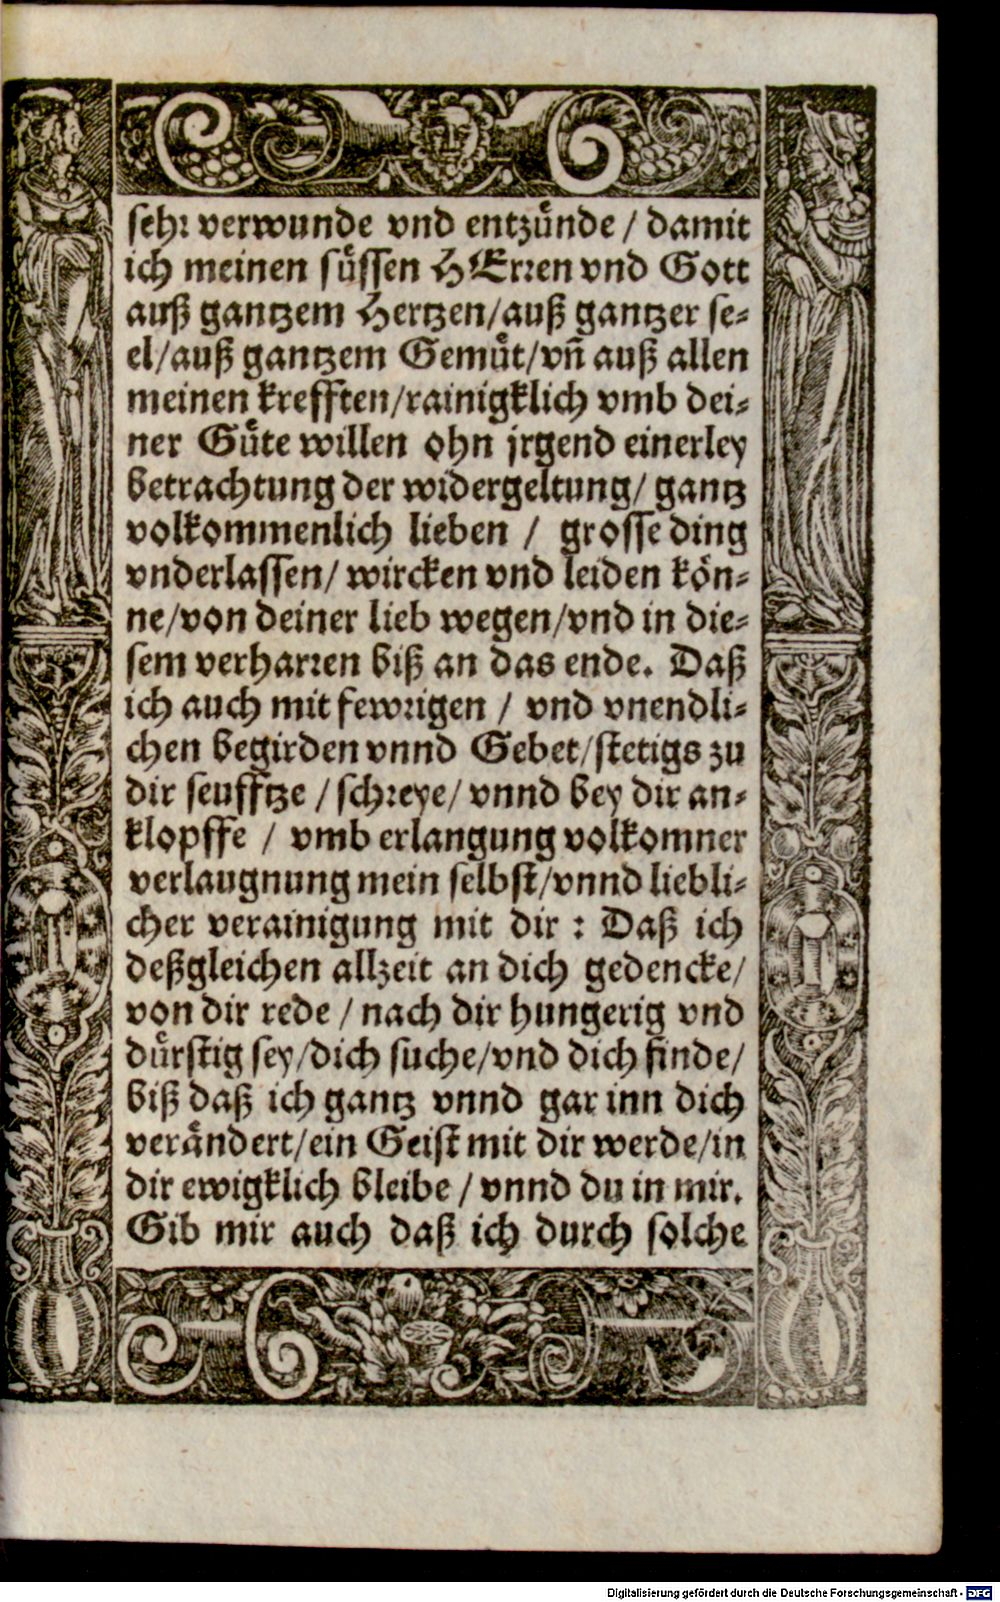 sehr verwunde vnd entzünde / damit
ich meinen süssen HErren vnd Gott
auß gantzem Hertzen/auß gantzer se-
el/auß gantzem Gemüt/vñ auß allen
meinen krefften/rainigklich vmb dei-
ner Güte willen ohn jrgend einerley
betrachtung der widergeltung/ gantz
volkommenlich lieben / grosse ding
vnderlassen/ wircken vnd leiden kön-
ne/von deiner lieb wegen/vnd in die-
sem verharren biß an das ende. Daß
ich auch mit fewrigen / vnd vnendli-
chen begirden vnnd Gebet/stetigs zu
dir seufftze / schreye/ vnnd bey dir an-
klopffe / vmb erlangung volkomner
verlaugnung mein selbst/vnnd liebli-
cher verainigung mit dir : Daß ich
deßgleichen allzeit an dich gedencke/
von dir rede / nach dir hungerig vnd
dürstig sey/dich suche/vnd dich finde/
biß daß ich gantz vnnd gar inn dich
verändert/ein Geist mit dir werde/in
dir ewigklich bleibe / vnnd du in mir.
Gib mir auch daß ich durch solche
Digitalisierung gefördert durch die Deutsche Forschungsgemeinschaft - DFG